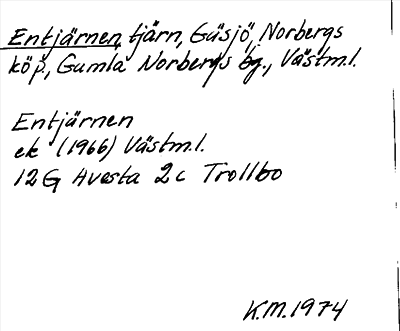 Entjärnen, tjärn, Gäsjö, Norbergs
köp, Gamla Norbergs bg., Västm.l.
Entjärnen
ek (1966) Västm.l.
12G Avesta 2c Trollbo
K.M. 1974